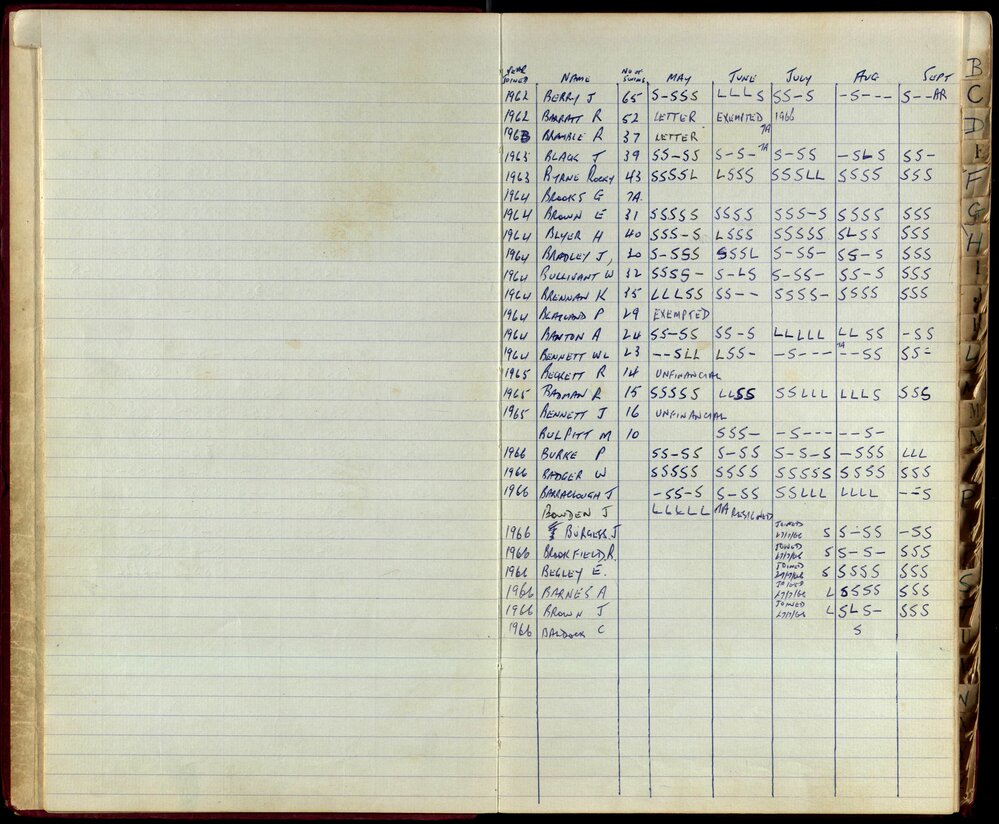 YEAR JOINED NAME NO OF SWIMS MAY JUNE JULY AUG SEPT
1962 BERRY J 65 S-SSS LLLS SS-S -S--- S--AR
1962 BARRATT R 52 LETTER EXEMPTED 1966
1963 BRAMBLE R 37 LETTER 7A
1963 BLACK T 39 SS-SS S-S- 7A S-SS -SLS SS-
1963 BYRNE ROCKY 43 SSSSL LSSS SSSLL SSSS SSS
1964 BROOKS G 7A.
1964 BROWN E 31 SSSSS SSSS SSS-S SSSS SSS
1964 BLYER H 40 SSS-S LSSS SSSSS SLSS SSS
1964 BRADLEY J, 20 S-SSS SSSL S-SS- SS-S SSS
1964 BULLIVANT W 32 SSSS- S-LS S-SS- SS-S SSS
1964 BRENNAN K 35 LLLSS SS-- SSSS- SSSS SSS
1964 P 29 EXEMPTED
1964 BANTON A 24 SS-SS SS-S LLLLL LLSS -SS
1964 BENNETT WL 23 --SLL LSS- -S--- 7A --SS SS-
1965 BECKETT R 14 UNFINANCIAL
1965 BADMAN R 15 SSSSS LLSS SSLLL LLLS SSS
1965 BENNETT J 16 UNFINANCIAL
BULPITT M 10 SSS- -S--- --S-
1966 BURKE P SS-SS S-SS S-S-S -SSS LLL
1966 BADGER W SSSSS SSSS SSSSS SSSS SSS
1966 BARRACLOUGH J -SS-S S-SS SSLLL LLLL --S
BOWDEN J LLLLL 7A RESIGNED
1966 BURGESS J JOINED 27/7/66 S S-SS -SS
1966 BROOKFIELD R. JOINED 27/7/66 S S-S- SSS
1966 BEGLEY E. JOINED 27/7/66 S SSSS SSS
1966 BARNES A JOINED 27/7/66 L SSSS SSS
1966 BROWN J JOINED 27/7/66 L SLS- SSS
1966 BALDOCK C S
B
C
D
F
G
H
I
J
L
M
P
S
T